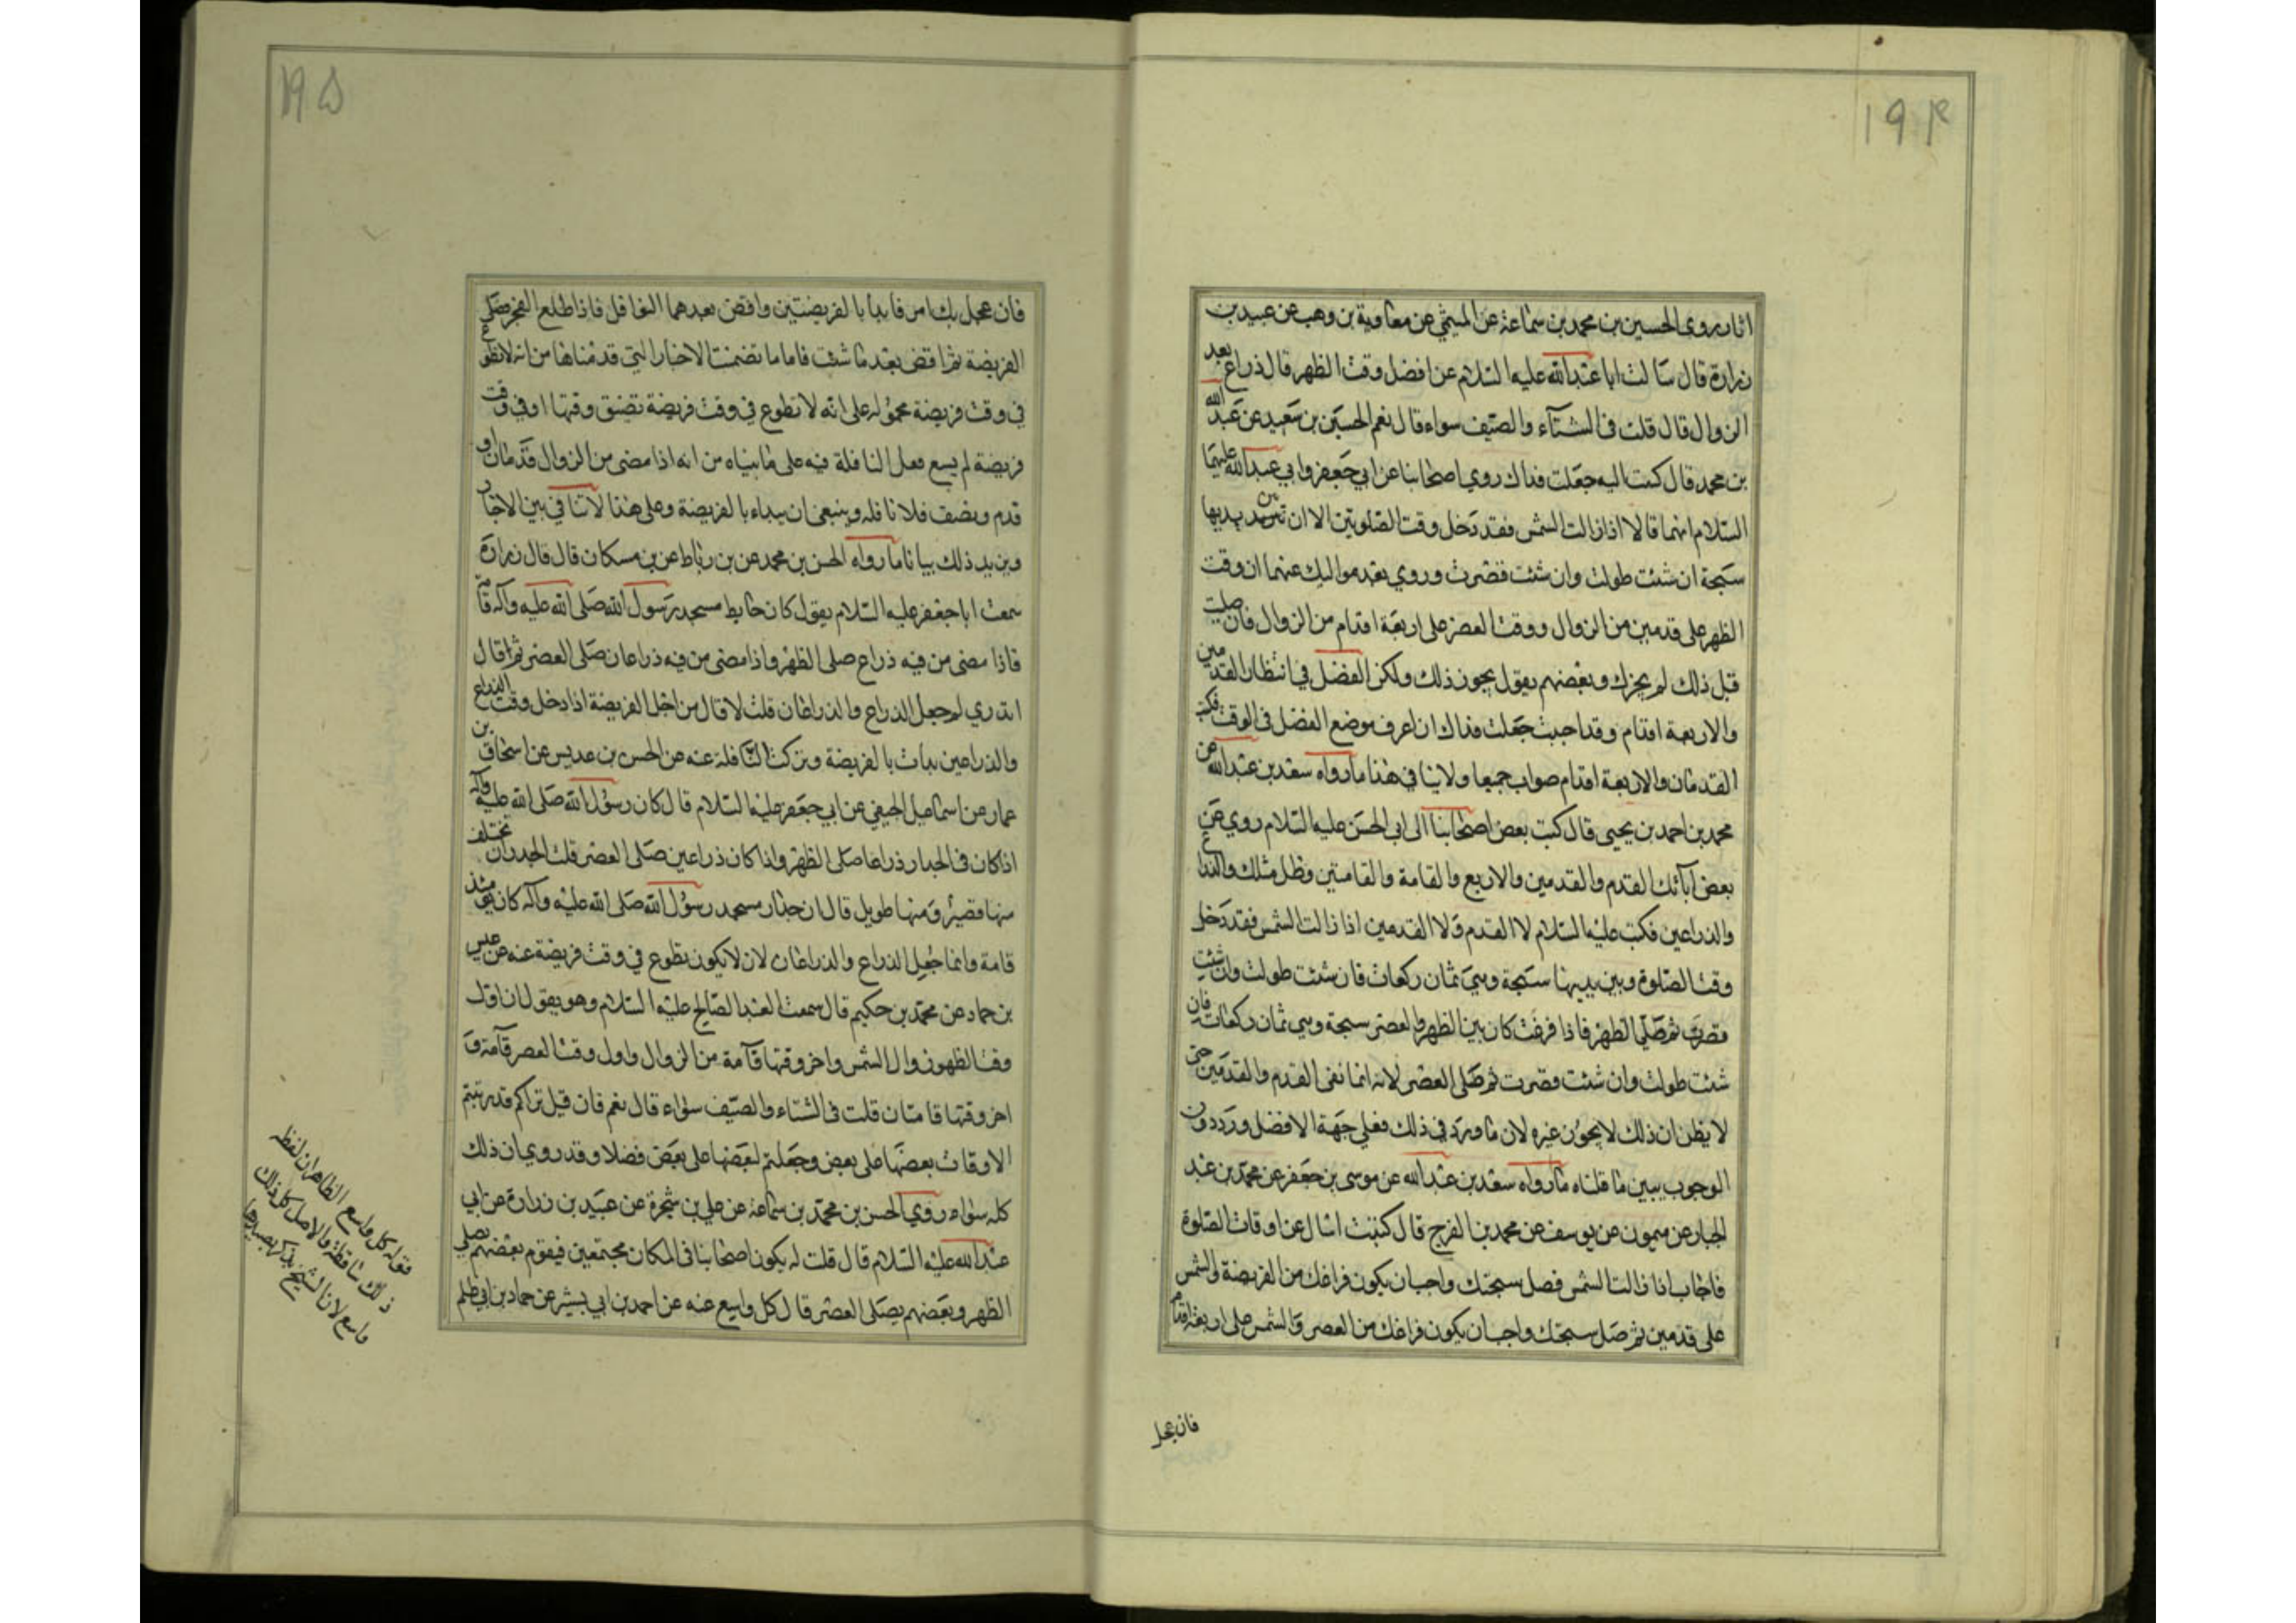 ۱۹۴
اثار روى الحسين بن محمد بن سماعة عن الميثمي عن معاوية بن وهب عن عبيد بن
زرارة قال سالت ابا عبد الله عليه السلام عن افضل وقت الظهر قال ذراع بعد
الزوال قال قلت في الشتاء والصيف سواء قال نعم الحسين بن سعيد عن عبد الله
بن محمد قال كتبت اليه جعلت فداك روي اصحابنا عن ابي جعفر وابي عبد الله عليهما
السلام انهما قالا اذا زالت الشمس فقد دخل وقت الصلوتين الا ان بين يديها
سبحة ان شئت طولت وان شئت قصرت وروي بعد مواليك عنهما ان وقت
الظهر على قدمين من الزوال ووقت العصر على اربعة اقدام من الزوال فان صليت
قبل ذلك لم يجزك وبعضهم يقول يجوز ذلك ولكن الفضل في انتظار القدمين
والاربعة اقدام وقد احببت جعلت فداك ان اعرف موضع الفضل في الوقت فكتب
القدمان والاربعة اقدام صواب جميعا ولا ينافي هذا ما رواه سعد بن عبد الله عن
محمد بن احمد بن يحيى قال كتب بعض اصحابنا الى ابي الحسن عليه السلام روي عن
بعض آبائك القدم والقدمين والاربع والقامة والقامتين وظل مثلك والذراع
والذراعين فكتب عليه السلام لا القدم ولا القدمين اذا زالت الشمس فقد دخل
وقت الصلوة وبين يديها سبحة وهي ثمان ركعات فان شئت طولت وان شئت
قصرت ثم صلي الظهر فاذا فرغت كان بين الظهر والعصر سبحة وهي ثمان ركعات فان
شئت طولت وان شئت قصرت ثم صلى العصر لانه انما نفى القدم والقدمين حتى
لا يظن ان ذلك لا يجوز غيره لان ما ورد في ذلك فعلي جهة الافضل وردد ون
الوجوب يبين ما قلناه ما رواه سعد بن عبد الله عن موسى بن جعفر عن محمد بن عبد
الجبار عن ميمون عن يوسف عن محمد بن الفرج قال كتبت اسال عن اوقات الصلوة
فاجاب اذا زالت الشمس فصل سبحتك واحب ان يكون فراغك من الفريضة والشمس
على قدمين ثم صل سبحتك واحب ان يكون فراغك من العصر والشمس على اربعة اقدام
فان عجل
۱۹۵
فان عجل بك امر فابدأ بالفريضتين واقض بعدهما النوافل فاذا طلع الفجر فصل
الفريضة ثم اقض بعد ما شئت فاما ما تضمنت الاخبار التي قدمناها من انه لا تطوع
في وقت فريضة محمولة على انه لا تطوع في وقت فريضة تضيق وقتها او في وقت
فريضة لم يسع فعل النافلة فيه على ما بيناه من انه اذا مضى من الزوال قدمان او
قدم ونصف فلا نافلة وينبغي ان يبداء بالفريضة وعلى هذا لا تنافي بين الاخبار
ويزيد ذلك بيانا ما رواه الحسن بن محمد عن بن رباط عن بن مسكان قال قال زرارة
سمعت ابا جعفر عليه السلام يقول كان حايط مسجد رسول الله صلى الله عليه وآله قامة
فاذا مضى من فيه ذراع صلى الظهر واذا مضى من فيه ذراعان صلى العصر ثم قال
اتدري لم جعل الذراع والذراعان قلت لا قال من اجل الفريضة اذا دخل وقت الذراع
والذراعين بدات بالفريضة وتركت النافلة عنه عن الحسن بن عديس عن اسحاق بن
عمار عن اسماعيل الجعفي عن ابي جعفر عليه السلام قال كان رسول الله صلى الله عليه وآله
اذا كان في الجدار ذراعا صلى الظهر واذا كان ذراعين صلى العصر قلت الجدران تختلف
منها قصير ومنها طويل قال ان جدار مسجد رسول الله صلى الله عليه وآله كان يومئذ
قامة وانما جعل الذراع والذراعان لان لا يكون تطوع في وقت فريضة عنه عن عبيس
بن حماد عن محمد بن حكيم قال سمعت العبد الصالح عليه السلام وهو يقول ان اول
وقت الظهر زوال الشمس واخر وقتها قامة من الزوال واول وقت العصر قامة و
اخر وقتها قامتان قلت في الشتاء والصيف سواء قال نعم فان قيل تراكم قد رتبتم
الاوقات بعضها على بعض وجعلتم لبعضها على بعض فضلا وقد روي ان ذلك
كله سواء روي الحسن بن محمد بن سماعة عن علي بن شجرة عن عبيد بن زرارة عن ابي
عبد الله عليه السلام قال قلت له يكون اصحابنا في المكان مجتمعين فيقوم بعضهم يصلي
الظهر وبعضهم يصلي العصر قال كل واسع عنه عن احمد بن ابي بشير عن حماد بن ابي طلحة
قوله كل واسع الظاهر ان لفظه
ذلك ساقطة والاصل كل ذلك
واسع لان الشيخ يذكر بعيدها